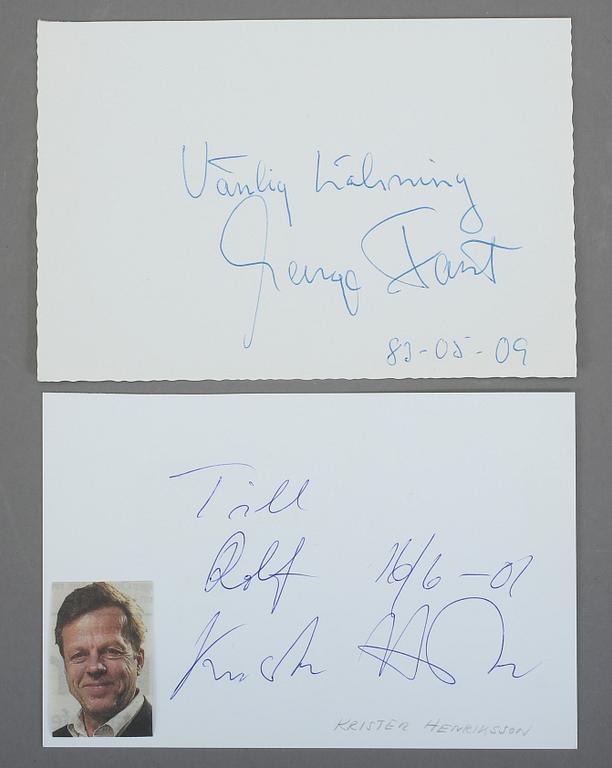 Vänlig Hälsning
George Fant
83-05-09
Till
Rolf 16/6-01
Krister H
KRISTER HENRIKSSON